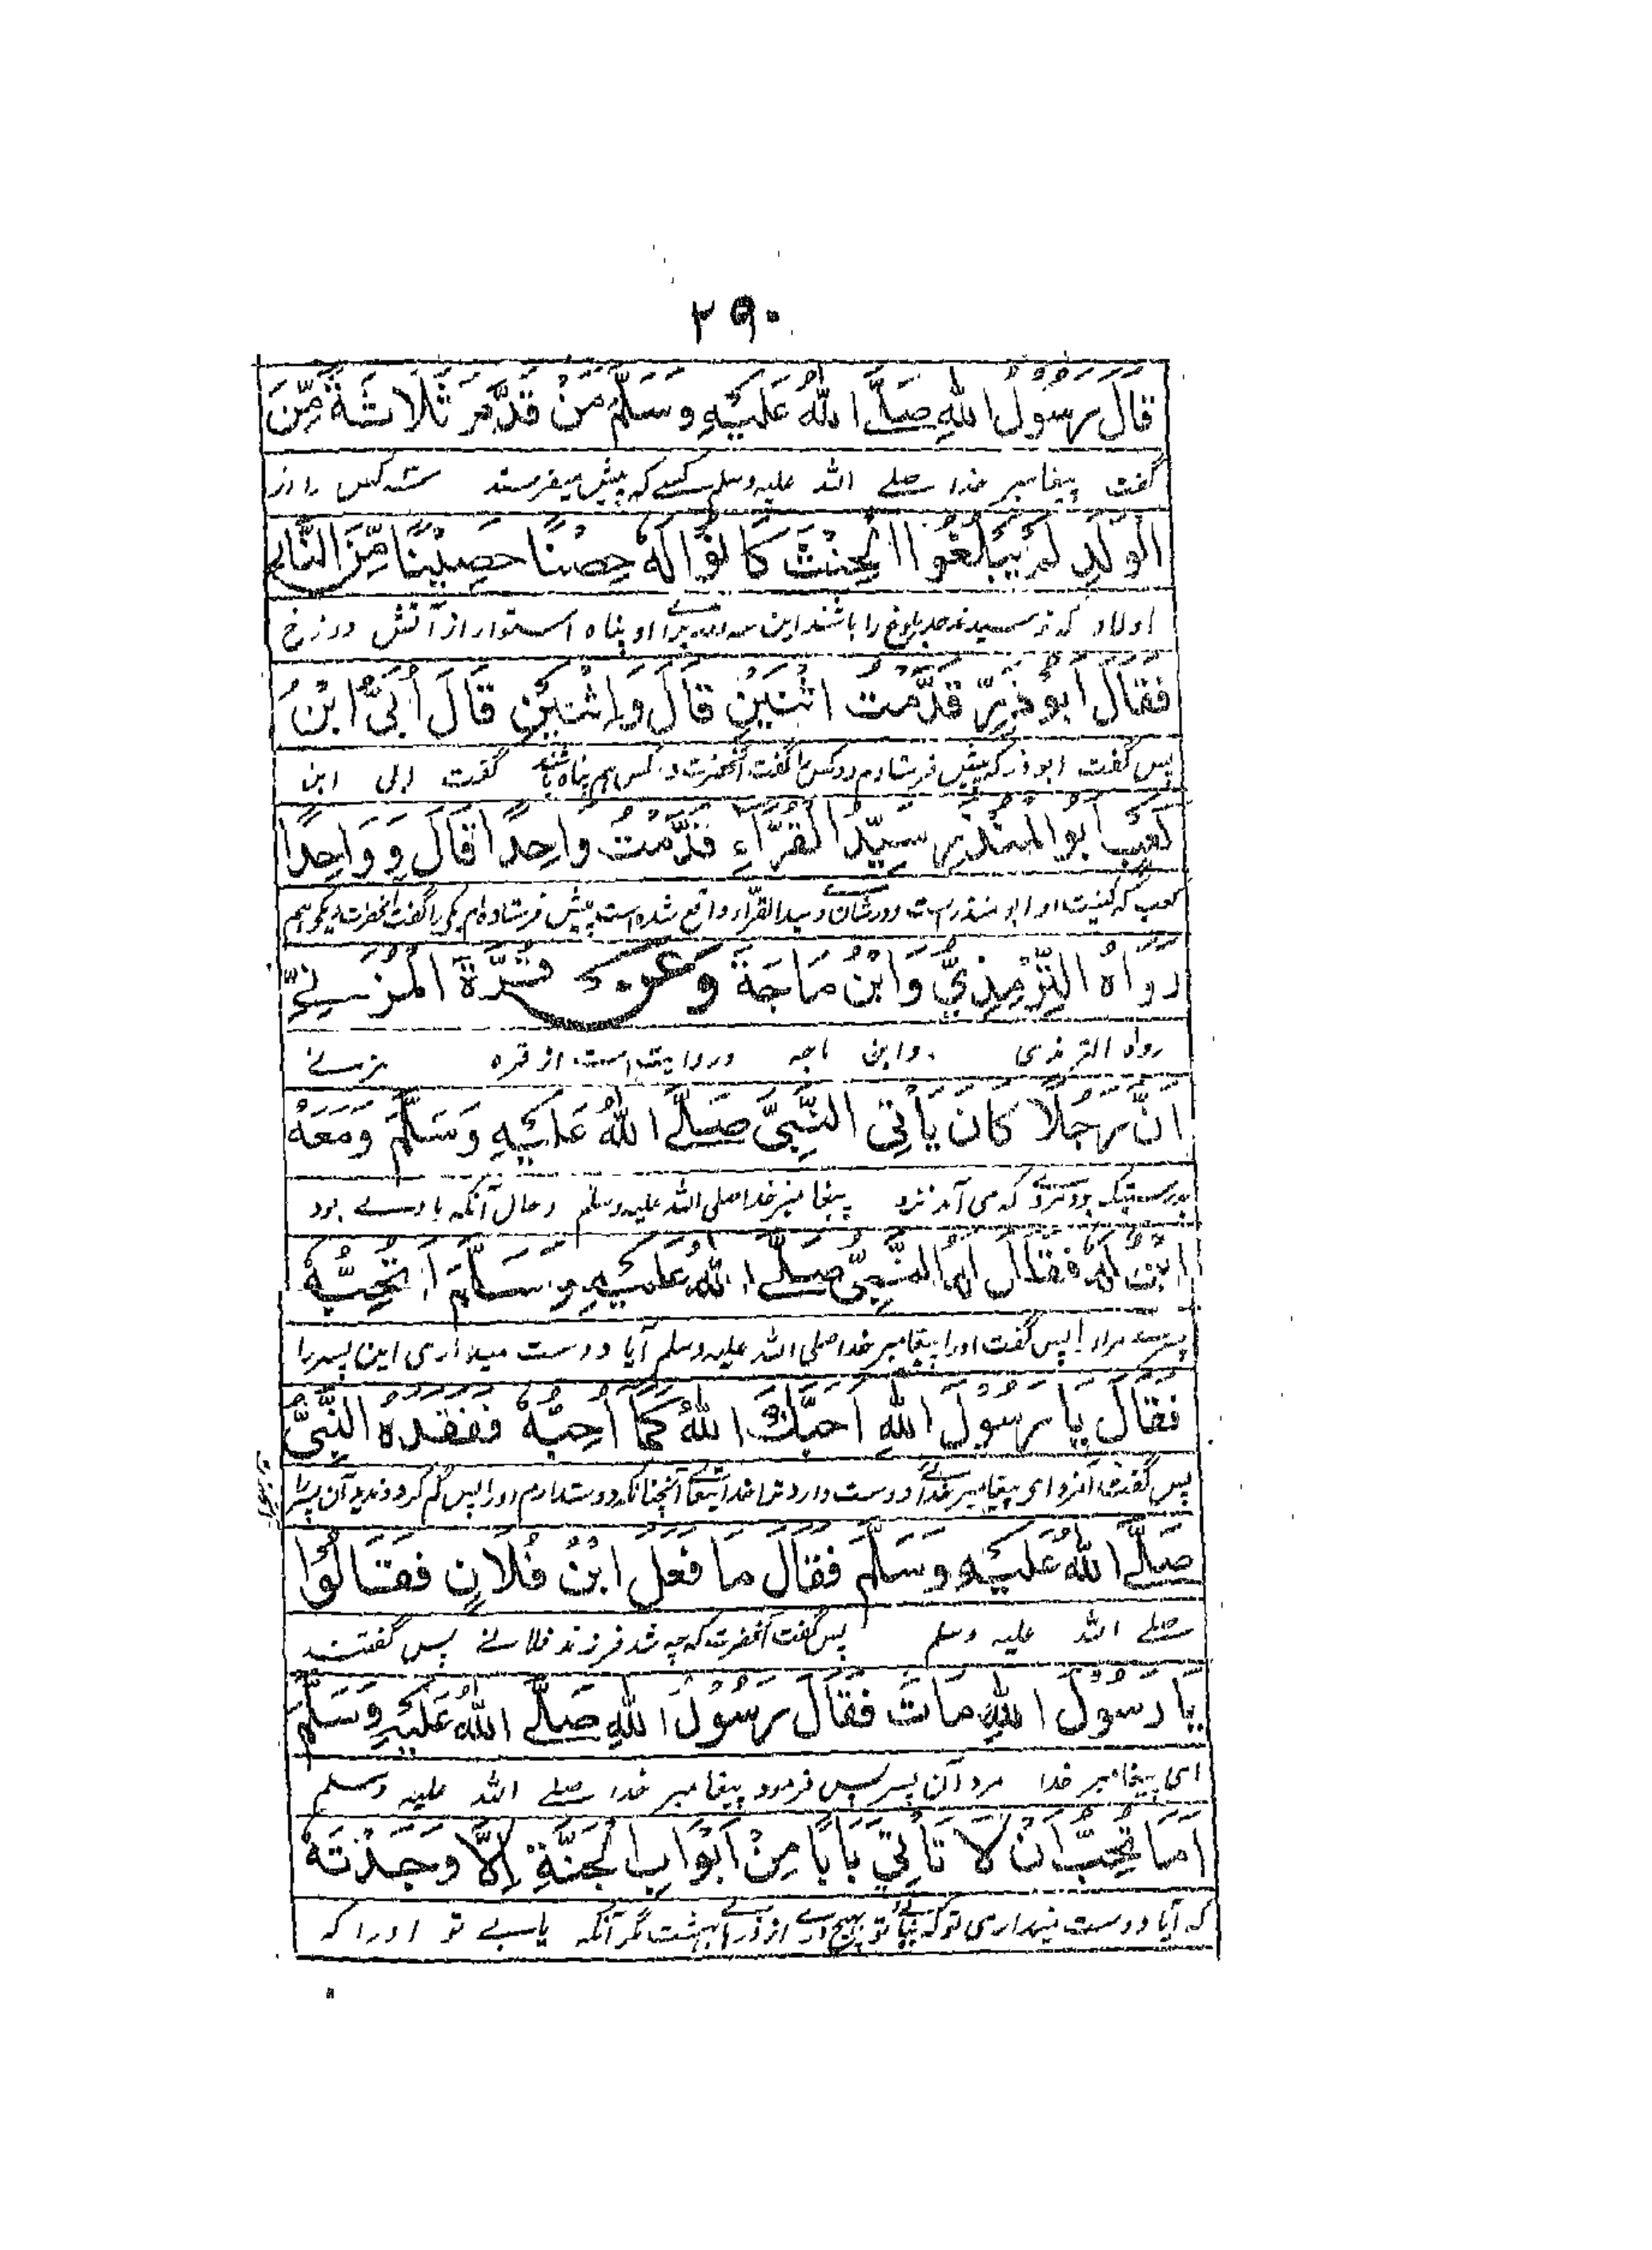 ۲۹۰
قَالَ رَسُوْلُ اللهِ صَلَّے اللهُ عَلَيْهِ وَسَلَّمَ مَنْ قَدَّمَ ثَلَاثَةً مِّنَ
گفت پیغامبر خدا صلے الله علیه وسلم کسے که پیش میفرستد سه کس را از
الْوَلَدِ لَمْ يَبْلُغُوا الْحِنْثَ كَانُوْا لَهٗ حِصْنًا حَصِيْنًا مِّنَ النَّارِ
اولاد که نرسیده حد بلوغ را باشند این سه اولاد برائے او پناه استوار از آتش دوزخ
فَقَالَ اَبُوْ ذَرٍّ قَدَّمْتُ اثْنَيْنِ قَالَ وَاِثْنَيْنِ قَالَ اُبَیُّ ابْنُ
پس گفت ابو ذر که پیش فرستادم دو کس را گفت آنحضرت دو کس هم پناه باشند گفت ابی ابن
كَعْبٍ اَبُو الْمُنْذِرِ سَيِّدُ الْقُرَّاءِ قَدَّمْتُ وَاحِدًا قَالَ وَ وَاحِدًا
کعب که کنیت او ابو منذر است و در شان وے سید القرّاء واقع شده است پیش فرستاده ام یکی را گفت آنحضرت یکی هم
رَوَاهُ التِّرْمِذِیُّ وَابْنُ مَاجَةَ وَعَنْ قُرَّةَ الْمُزَنِیِّ
رواه الترمذی وابن ماجه و روایت است از قره مزنے
اَنَّ رَجُلًا كَانَ يَأْتِی النَّبِیَّ صَلَّے اللهُ عَلَيْهِ وَسَلَّمَ وَمَعَهٗ
بدرستیکه بود مردے که می آمد نزد پیغامبر خدا صلی الله علیه وسلم و حال آنکه با وے بود
ابْنٌ لَهٗ فَقَالَ لَهُ النَّبِیُّ صَلَّے اللهُ عَلَيْهِ وَسَلَّمَ اَتُحِبُّهٗ
پسرے مر او را پس گفت او را پیغامبر خدا صلی الله علیه وسلم آیا دوست میداری این پسر را
فَقَالَ يَا رَسُوْلَ اللهِ اَحَبَّكَ اللهُ كَمَا اُحِبُّهٗ فَفَقَدَهُ النَّبِیُّ
پس گفت آنمرد ای پیغامبر خدائے دوست دارد ترا خدایتعالے آنچنانکه دوست دارم او را پس گم کرد و ندید آن پسر را
صَلَّے اللهُ عَلَيْهِ وَسَلَّمَ فَقَالَ مَا فَعَلَ ابْنُ فُلَانٍ فَقَالُوْا
صلے الله علیه وسلم پس گفت آنحضرت که چه شد فرزند فلانے پس گفتند
يَا رَسُوْلَ اللهِ مَاتَ فَقَالَ رَسُوْلُ اللهِ صَلَّے اللهُ عَلَيْهِ وَسَلَّمَ
ای پیغامبر خدا مرد آن پسر پس فرمود پیغامبر خدا صلے الله علیه وسلم
اَمَا تُحِبُّ اَنْ لَا تَأْتِیَ بَابًا مِنْ اَبْوَابِ الْجَنَّةِ اِلَّا وَجَدْتَهٗ
که آیا دوست نمیداری تو که نیائے تو هیچ درے از درهائے بهشت مگر آنکه یابے تو او را که